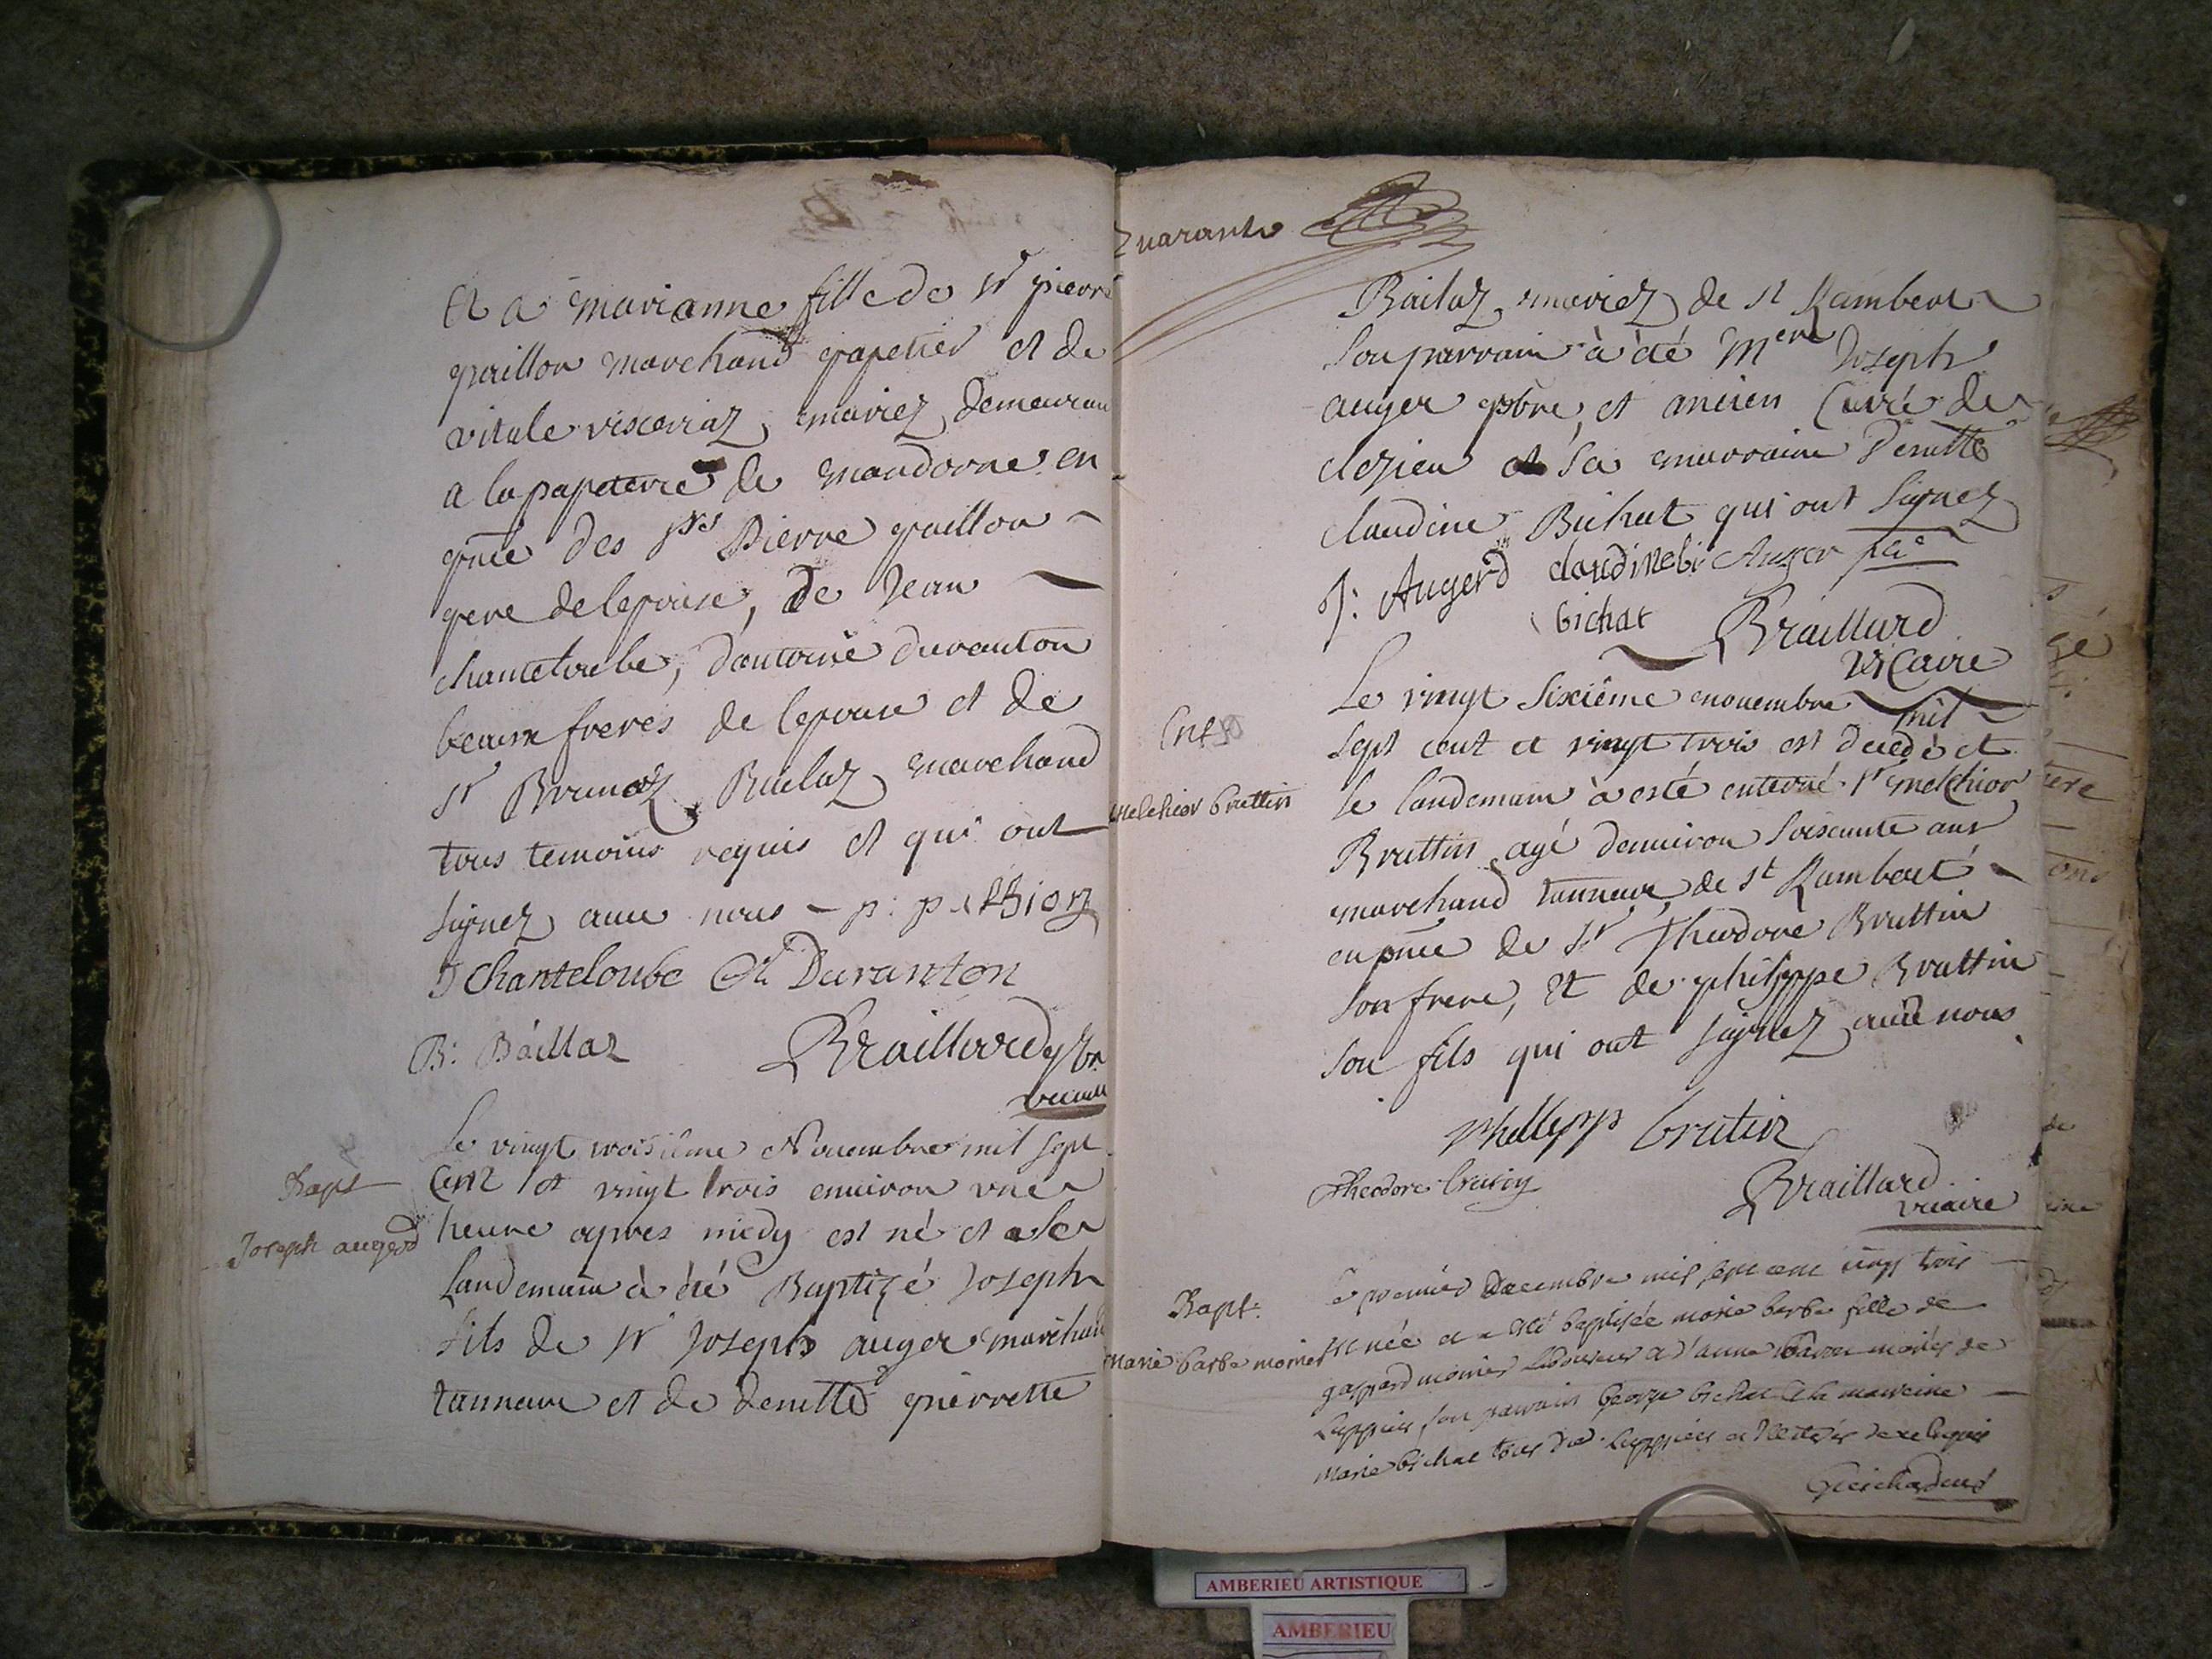 Et a marianne fille de sr pierre
paillon marchand papetier et de
vitale viscariaz mariez demeuran
a la papeterie de mandorne en
pnce des srs Pierre paillon
pere de lepouse, de Jean
chanteloube, dantoine duranton
beaux freres de lepouse et de
sr Brunoz Bailaz marchand
tous temoins requis et qui ont
signez avec nous - p: p
J Chanteloube Duranton
B: Baillaz Braillard pbr
vicaire
Le vingt troisième Novembre mil sept
Bapt
Cent et vingt trois environ une
Joseph augerd
heure apres midy est né et a le
landemain à été Baptizé Joseph
fils de sr Joseph auger marchand
tanneur et de demlle pierrette
quarante
Bailaz mariez de st Rambert
Son parrain à été Mere Joseph
auger pbre, et ancien Curé de
clezieu et Sa marraine Demlle
claudine Bichat qui ont Signez
J: Augerd claudinebi Auger
bichat Braillard
vicaire
Le vingt Sixiême novembre mil
Ent
Sept cent et vingt trois est decedé et
melchior bruttin
le landemain à esté enterré sr melchior
Bruttin agé denuiron soixante ans
marchand tanneur de st Rambert
en pnce de sr Theodore Bruttin
son frere, Et de philippe Bruttin
son fils qui ont signez auec nous
Phellipp brutin
Theodore brutin
Braillard
vicaire
Le premier Decembre mil sept cent vingt trois
Bapt:
est née et a esté baptisée marie barbe fille de
Marie barbe momier
gaspard momier laboureur et d'anne mariés de
Luppieu son parrain George bichat et la marreine
Marie bichat tous dud. Luppieu et illiterés de ce enquis